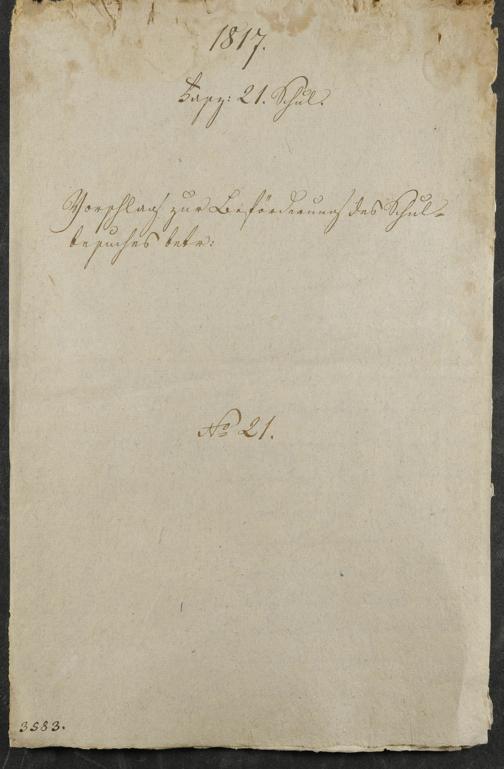 1817.
21. Schul.
Vorschlag zur Beförderung des Schul-
besuches betr:
No 21.
3583.